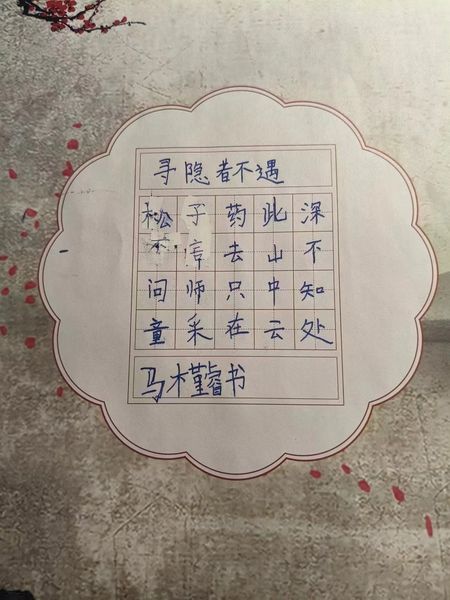 寻隐者不遇
松问童
子言师采
药去只在
此山中云
深不知处
马槿睿书